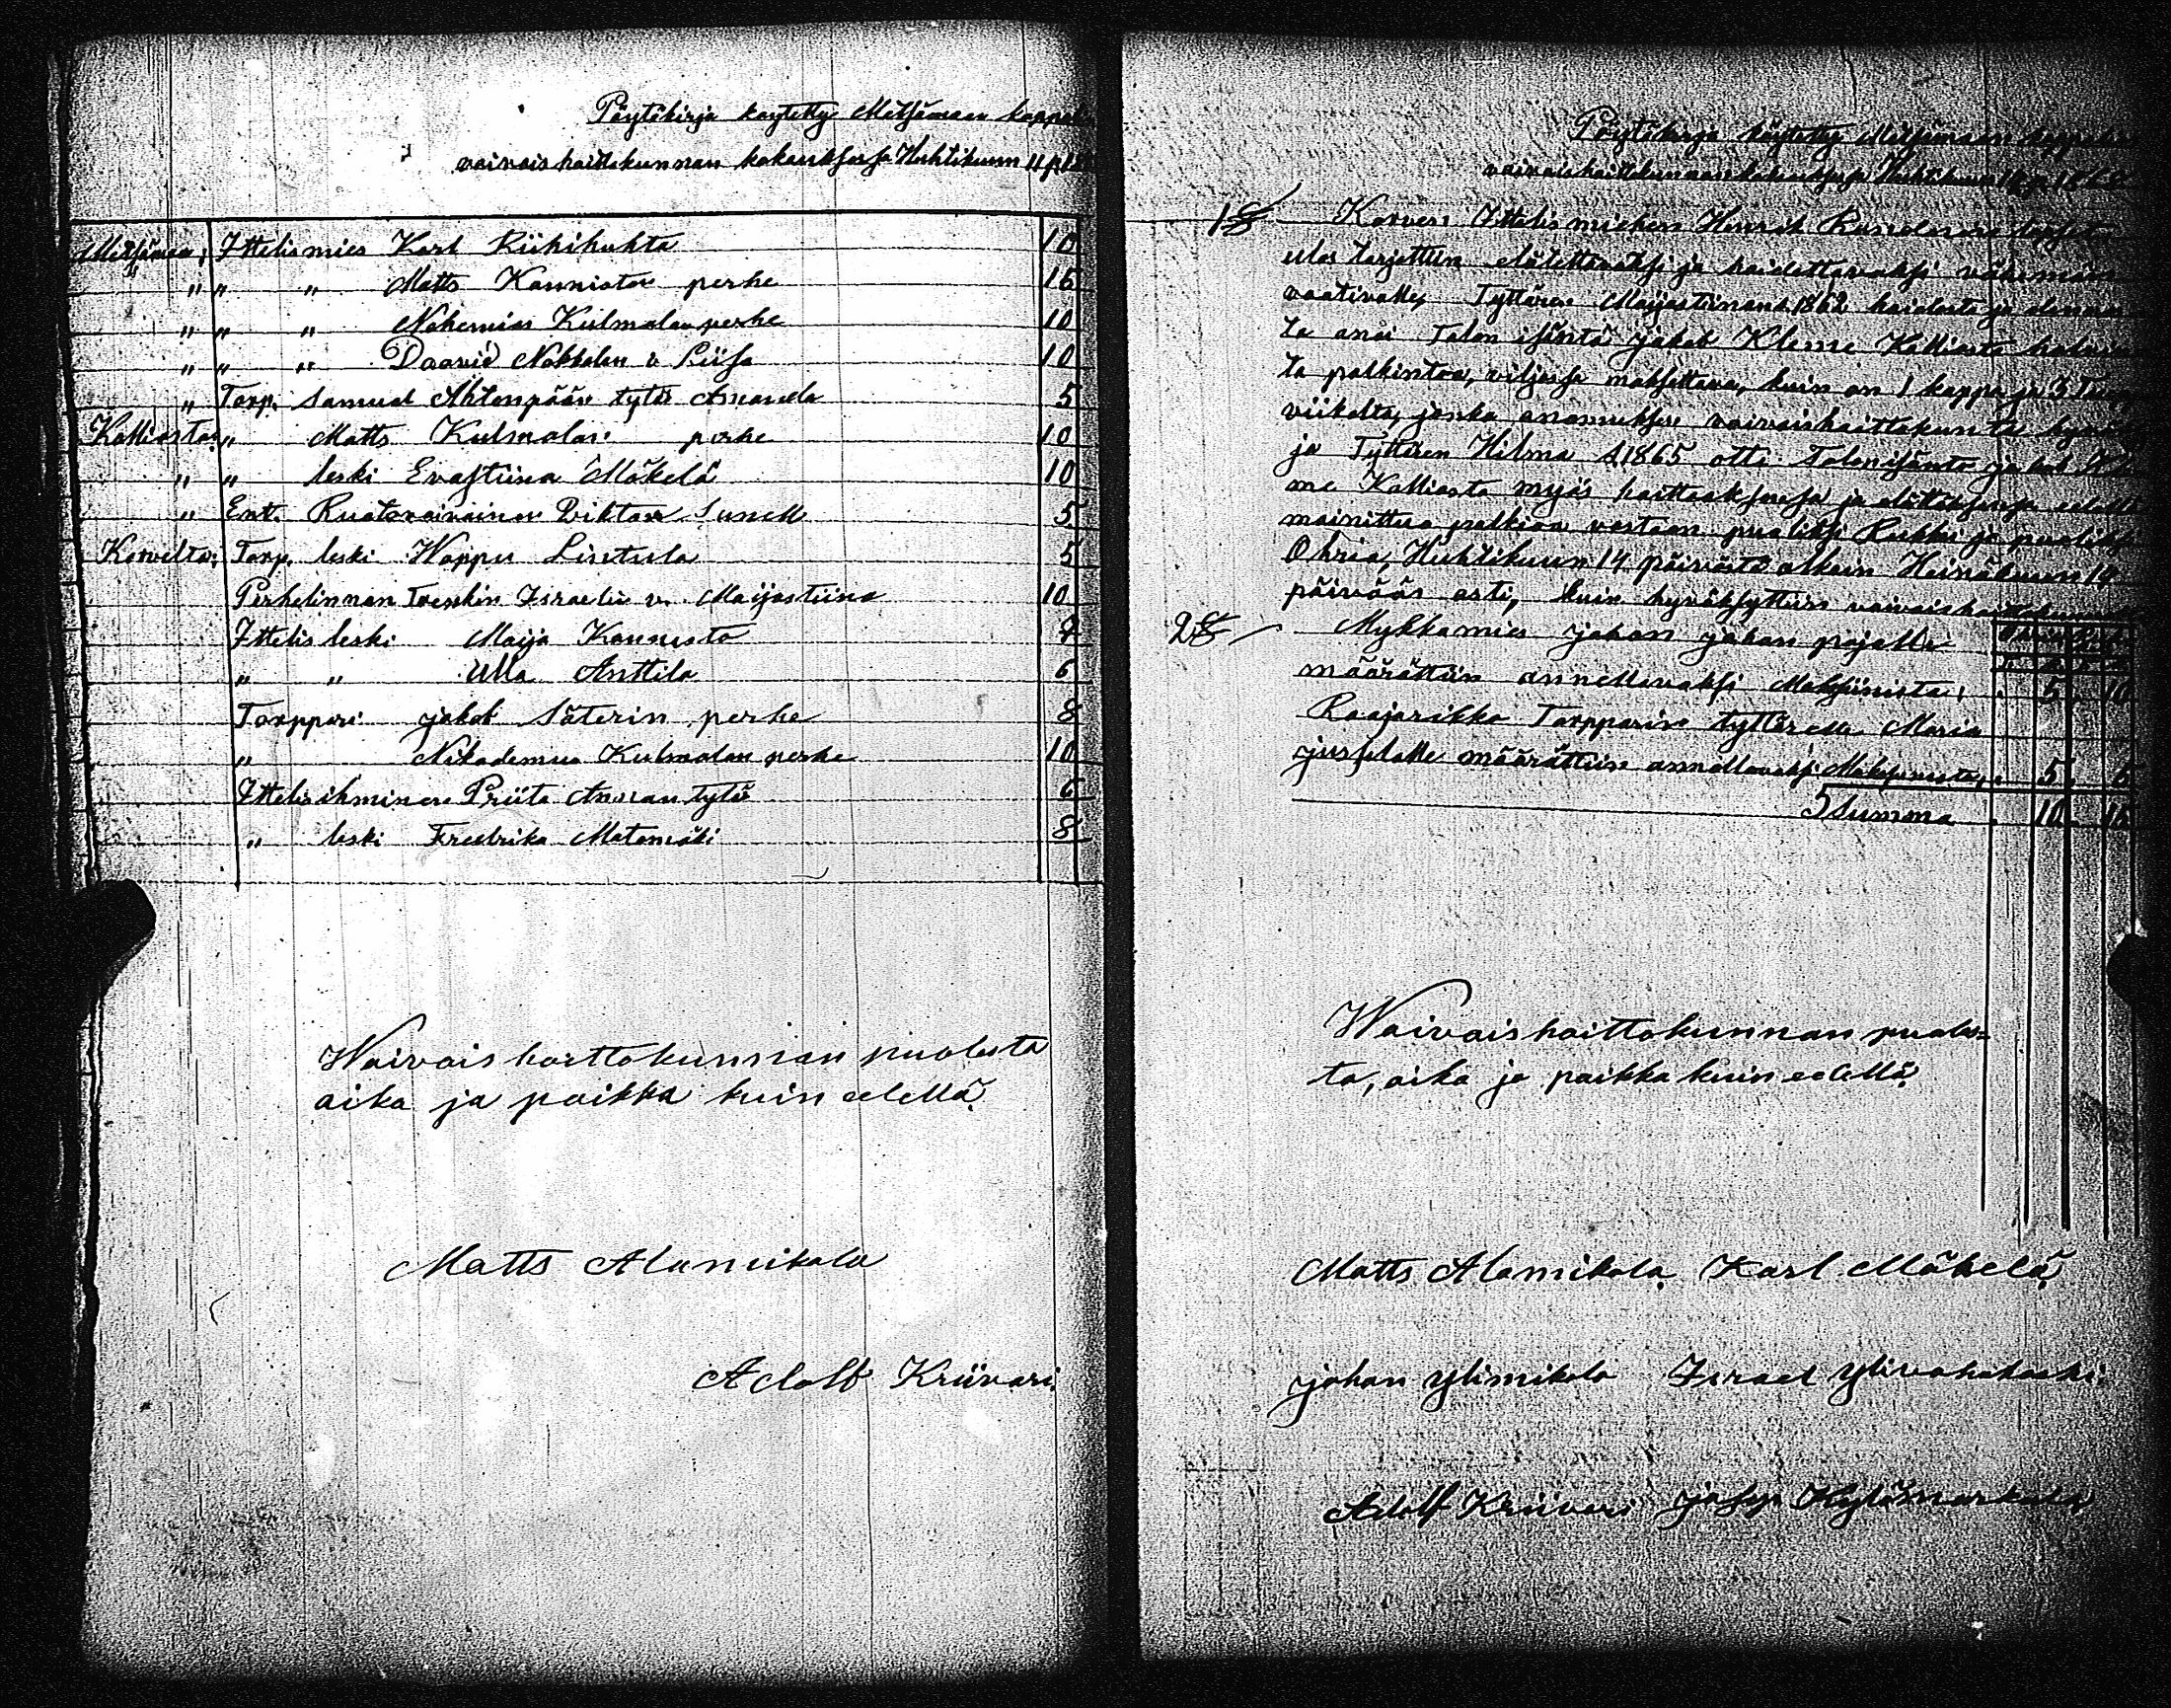 Pöytäkirja käytetty Metsämaan kappel
vaivaishoittokunnan kokouksessa Huhtikuun 11 p
Metsämaa; Ittelismies Karl Riihihuhta 10
" " " Matts Kanniston perhe 15
" " " Nehemias Kulmalan perhe 10
" " " Daavid Nokkalan v. Liisa 10
" Torp. Samuel Ahtonpään tytär Amanda 5
Kalliosta; " Matts Kulmalan perhe 10
" " leski Evastiina Mäkelä 10
" Ent. Ruotuvaivainen Viktor Sunell 5
Korvelta; Torp. leski Wappu Lintula 5
Perhelinnan Trenkin Israelin v. Maijastiina 10
Ittelis leski Maija Kannisto 7
" " Ulla Anttila 6
Torppari jakob Säterin perhe 8
" Nikodemus Kulmalan perhe 10
Ittelisihminen Priita Annantytär 6
" leski Fredrika Matomäki 8
Waivaishoittokunnan puolesta
aika ja paikka kuin edellä
Matts Alamikola
Adolf Kriivari
Pöytäkirja käytetty Metsämaan kappel
vaivaishoittokunnan kokouksessa Huhtikuun 14 p.
1 § Korven Ittelismiehen Henrik lapset
ulos tarjottiin elätettäväksi ja hoidettavaksi vähemmän
vaativalle, Tyttären Maijastiinan s. 1862 hoidosta ja
ta anoi Talon isäntä jakob Kleme Kalliosta
ta palkintoa, viljassa maksettava, kuin on 1 kappa ja 3
viikolta, jonka anomuksen vaivaishoittokunta
ja Tyttären Hilma s. 1865 otti Talonisäntä jakob Kle
me Kalliosta myös hoittaaksensa ja elättääksensä edellä
mainittua palkkioa vastaan puoliksi Rukkii ja puoliksi
Ohria, Huhtikuun 14 päivästä alkain Heinäkuun 14
päivään asti, kuin hyväksyttiin
2 § Mykkamies johan johan pojalle
määrättiin annettavaksi Makasiinista; 5 10
Raajarikko Torpparin tyttärelle Maria
määrättiin annettavaksi Makasiinista, 5 5
Summa 10 15
Waivaishoittokunnan puoles=
ta, aika ja paikka kuin edellä
Matts Alamikola Karl Mäkelä
johan Ylimikola Israel Ylivahakoski
Adolf Kriivari